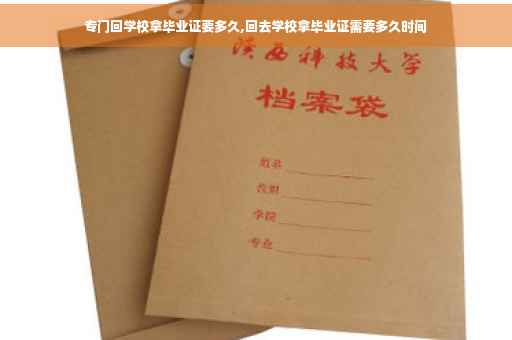 专门回学校拿毕业证要多久,回去学校拿毕业证需要多久时间
陕西科技大学
档案袋
姓名
性别
学院
专业